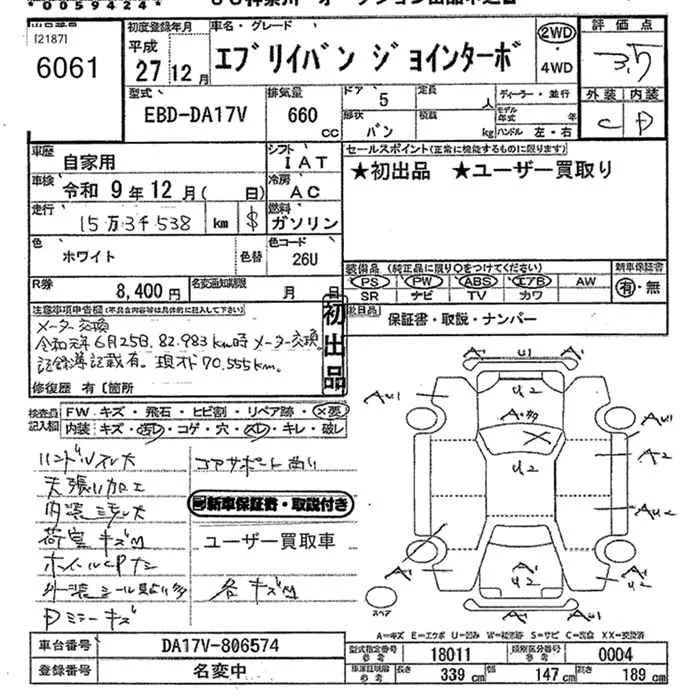 0059424
[2187]
6061
初度登録年月
平成
27年12月
車名・グレード
エブリイバン ジョインターボ
2WD
・
4WD
評価点
3.5
外装 内装
C D
型式
EBD-DA17V
排気量
660 cc
ドア
5
定員
人
形状
バン
積載
kg
ディーラー・並行
モデル年式
年
ハンドル 左・右
車歴
自家用
シフト
IAT
車検
令和 9年 12月 ( 日)
冷房
AC
走行
15万3千538 km $
燃料
ガソリン
色
ホワイト
色替
色コード
26U
R券
8,400円
名変通知期限
月 日
セールスポイント(正常に機能するものに限ります)
★初出品 ★ユーザー買取り
装備品 (純正品に限り○をつけてください)
PS PW ABS エアB AW
SR ナビ TV カワ
新車保証書
有・無
欠品
保証書・取説・ナンバー
注意事項申告欄(不具合内容等は具体的に記入して下さい)
メーター交換
令和元年6月25日、82,983km時メーター交換。
記録簿記載有。現オド70,555km。
初出品
修復歴 有 [箇所
検査員記入欄
FW キズ・飛石・ヒビ割・リペア跡・×要
内装 キズ・汚レ・コゲ・穴・スレ・キレ・破レ
ハンドルスレ大
天張り加工
内装ミラー大
荷室キズM
ホイールCPナシ
Dミラーキズ
コアサポート曲り
新車保証書・取説付き
ユーザー買取車
各キズM
A1 U1 A1
AU1 U2 AU1
U2 A2
A1 A1
U2 U2
スペア
A=キズ E=エクボ U=凹み W=補修跡 S=サビ C=腐食 XX=交換済
車台番号
DA17V-806574
登録番号
名変中
型式指定番号
参考
18011
類別区分番号
参考
0004
車検証記載
参考
長さ 339 cm 幅 147 cm 高さ 189 cm